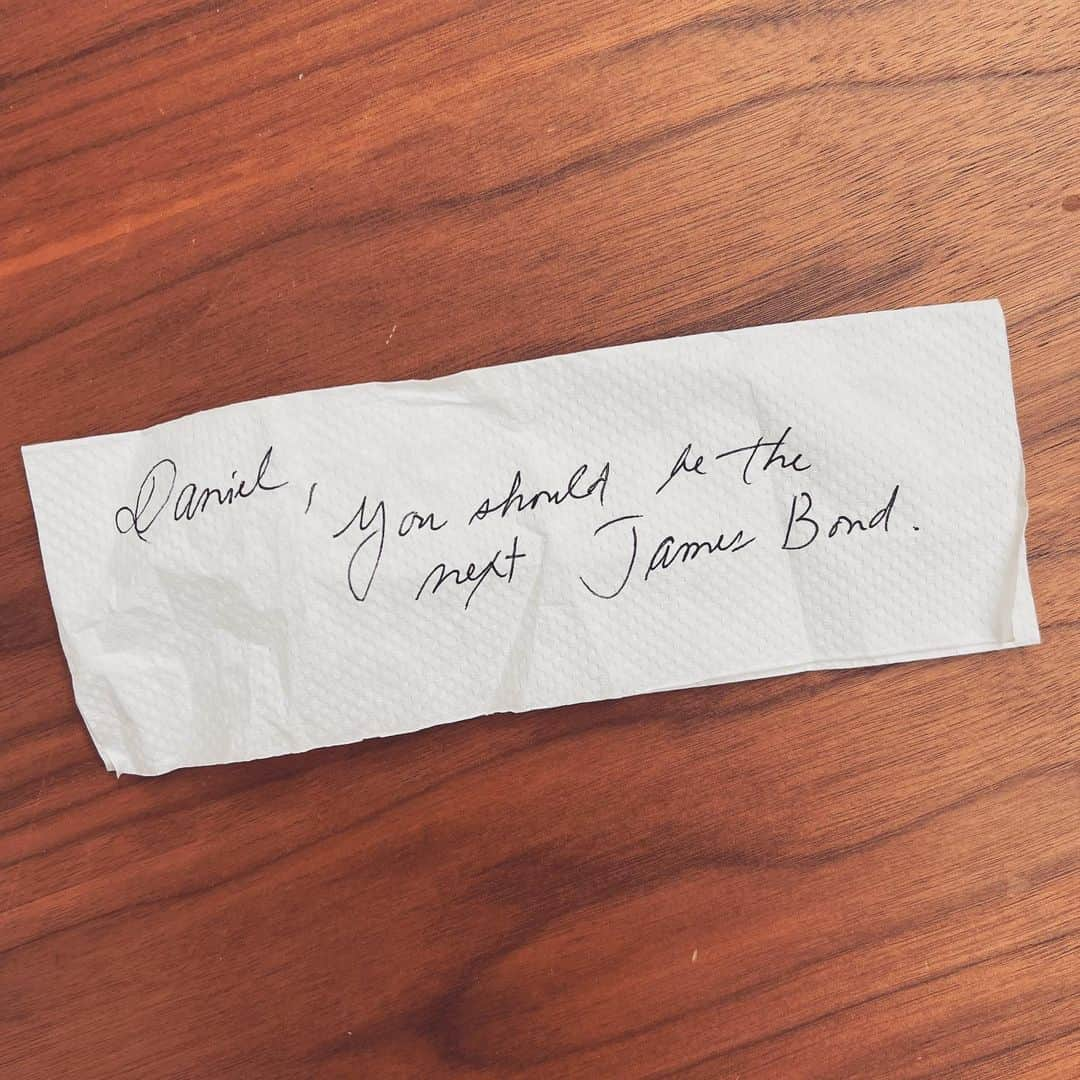 Daniel, you should be the
next James Bond.